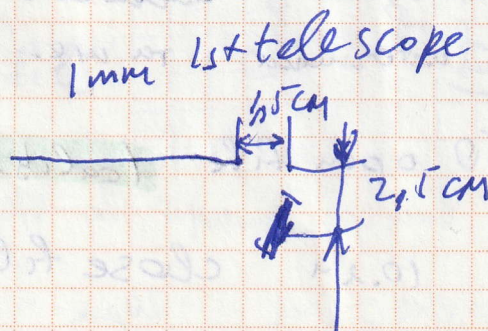 1mm 1st telescope
1,5 cm
2,5 cm